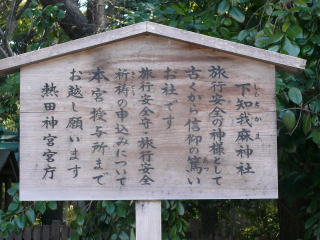 下知我麻神社
しもちかま
旅行安全の神様として
古くから信仰の篤い
あつ
お社です
旅行安全守 旅行安全
祈祷の申込みについて
きとう
本宮授与所まで
お越し願います
熱田神宮宮庁